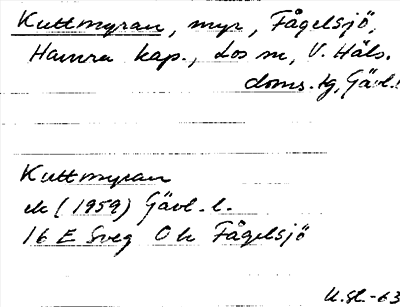 Kuttmyran, myr, Fågelsjö,
Hamra kap., Los sn, V. Häls.
doms. tg, Gävl. l.
Kuttmyran
ek (1959) Gävl. l.
16 E Sveg O h Fågelsjö
-63